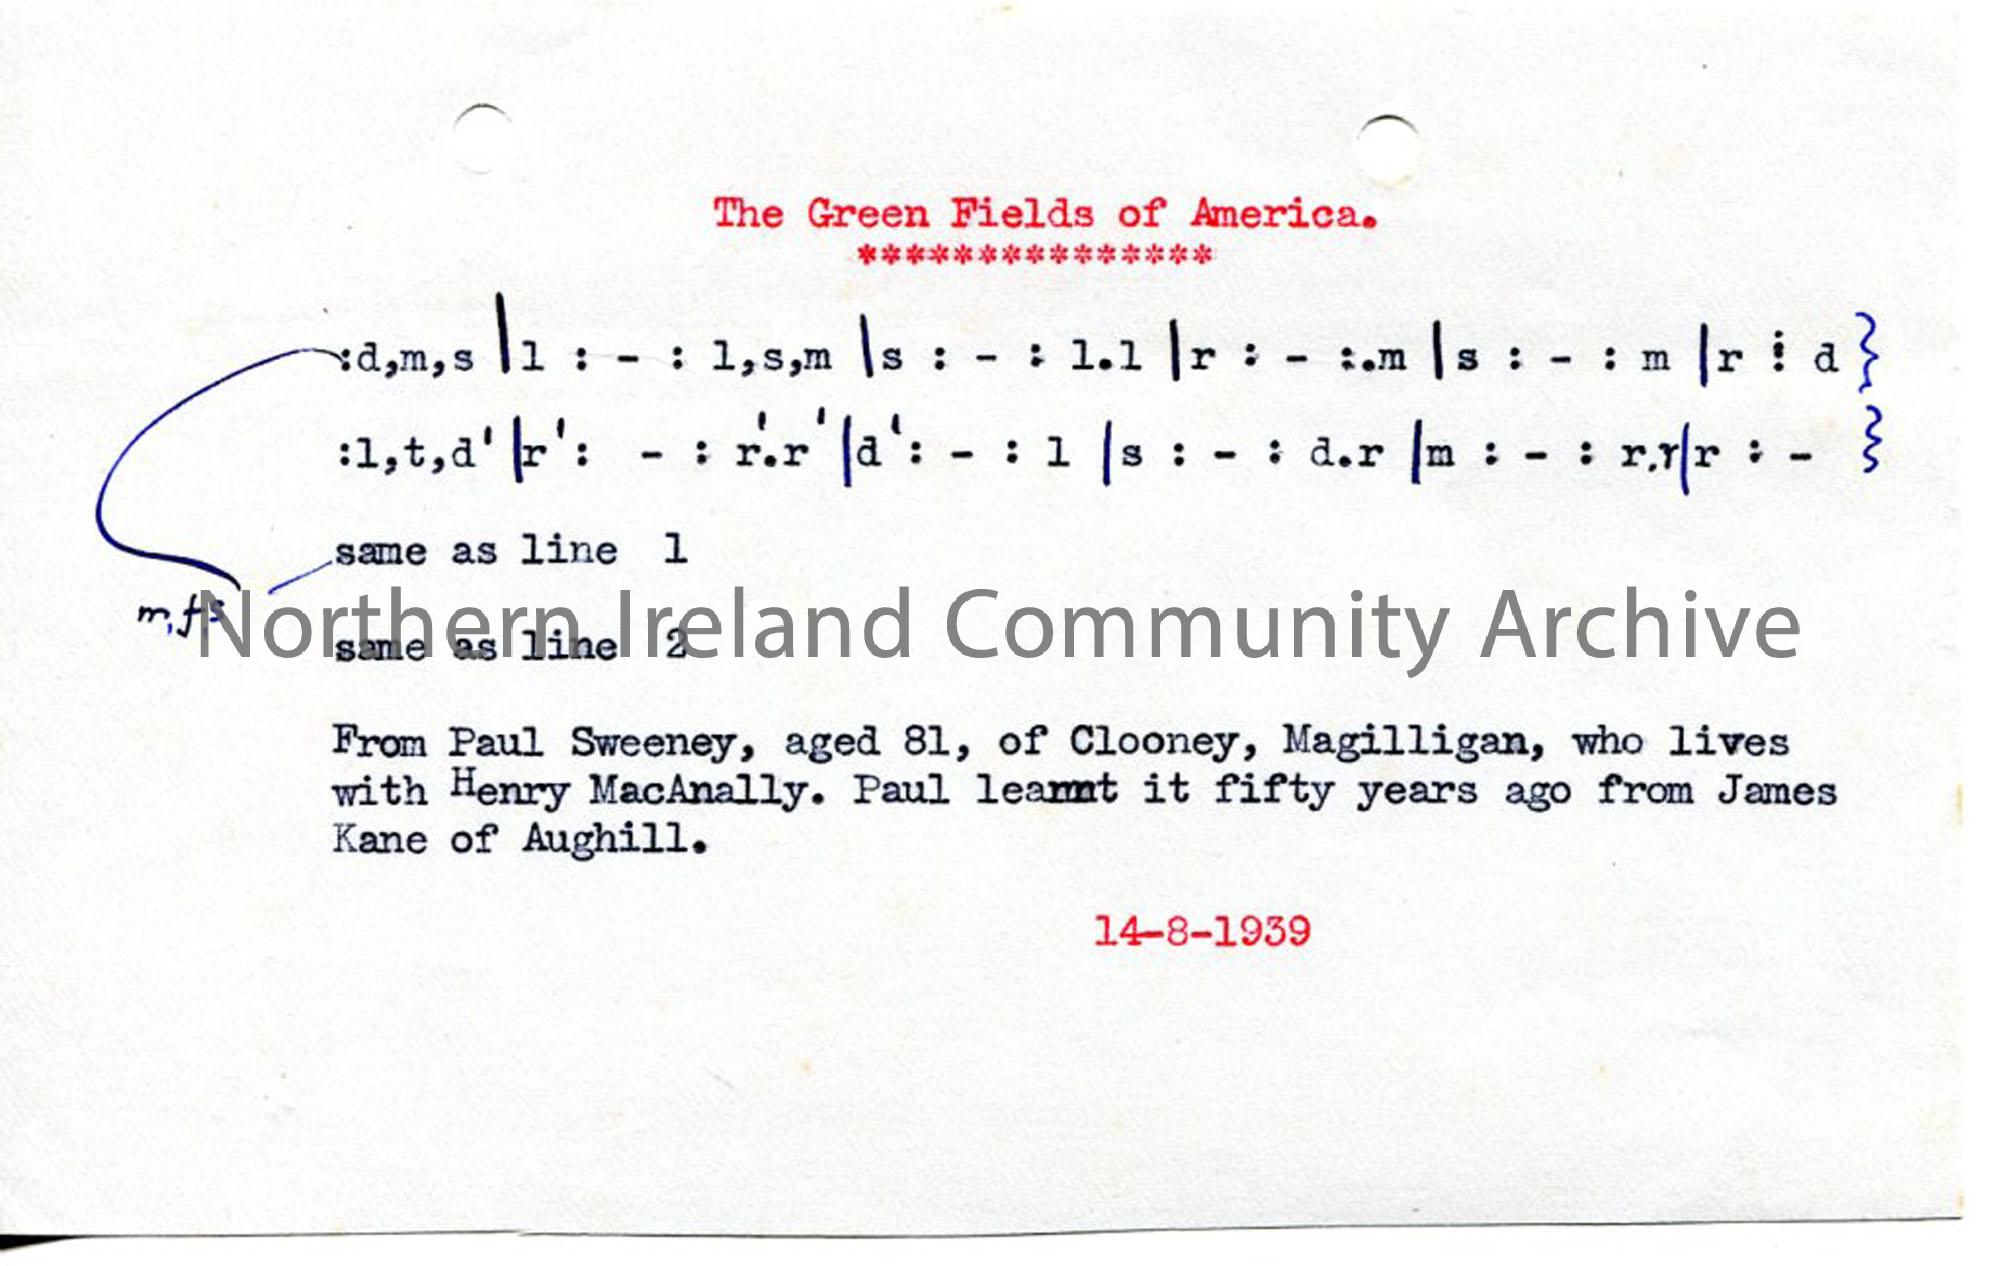 The Green Fields of America.
***************
:d,m,s |l : - : l,s,m |s : - : l.l |r : - :.m |s : - : m |r : d }
:l,t,d' |r' : - : r'.r' |d' : - : l |s : - : d.r |m : - : r.r|r : - }
same as line 1
m,f,s
Northern Ireland Community Archive
same as line 2
From Paul Sweeney, aged 81, of Clooney, Magilligan, who lives
with Henry MacAnally. Paul learnt it fifty years ago from James
Kane of Aughill.
14-8-1939